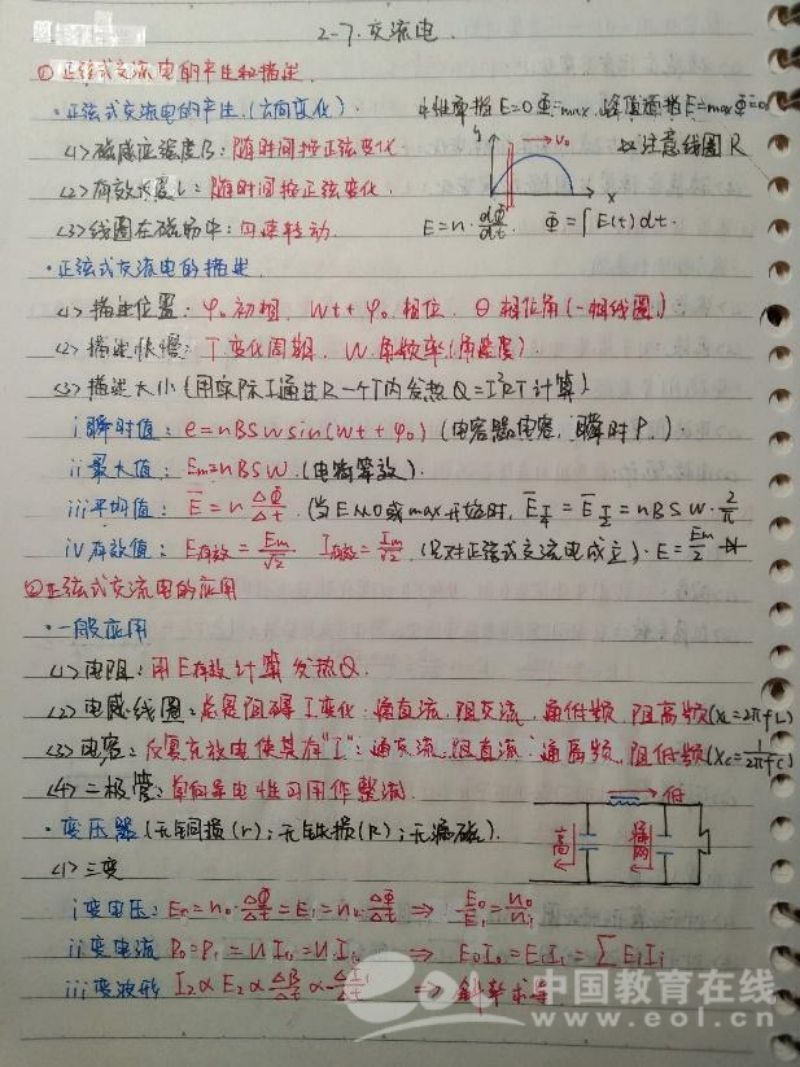 2-7. 交流电.
㊀正弦式交流电的产生和描述.
·正弦式交流电的产生.(方向变化). 中性面指E=0 Φ=max. 峰值面指E=max Φ=0
<1>磁感应强度B:随时间按正弦变化
y v₀ x
<2>有效长度L:随时间按正弦变化.
注意线圈R
<3>线圈在磁场中:匀速转动.
E=n·dΦ/dt. Φ=∫E(t)dt.
·正弦式交流电的描述.
<1>描述位置:φ₀初相. wt+φ₀.相位. θ相位角(一相线圈.)
<2>描述快慢:T变化周期. W.角频率(角速度).
<3>描述大小(用实际I通过R一个T内发热Q=I²RT计算)
i瞬时值:e=nBSwsin(wt+φ₀)(电容器电容,瞬时P.).
ii最大值:Em=nBSW.(电容等效).
iii平均值:E̅=n ΔΦ/Δt.(当E从0或max开始时,E̅T/4=E̅T/2=nBSW·2/π
iv有效值:E有效=Em/√2. I有效=Im/√2.(只对正弦式交流电成立)·E=Em/2
㊁正弦式交流电的应用
·一般应用
<1>电阻:用E有效计算发热Q.
<2>电感线圈:总是阻碍I变化:通直流.阻交流.通低频.阻高频(XL=2πfL)
<3>电容:反复充放电使其有"I":通交流.阻直流:通高频.阻低频(Xc=1/2πfc)
<4>二极管:单向导电性可用作整流.
低
·变压器(无铜损(r);无铁损(R);无漏磁).
高
<1>三变
i变电压:En=n₀·ΔΦ/Δt=E₁=n₁·ΔΦ/Δt ⇒ E₀/E₁=n₀/n₁
ii变电流 P₀=P₁=UI₀=U₁I₁ ⇒ E₀I₀=E₁I₁=∑EiIi
iii变波形 I₂∝E₂∝ΔB/Δt∝ΔI₁/Δt ⇒ 斜率求导
eol 中国教育在线
www.eol.cn